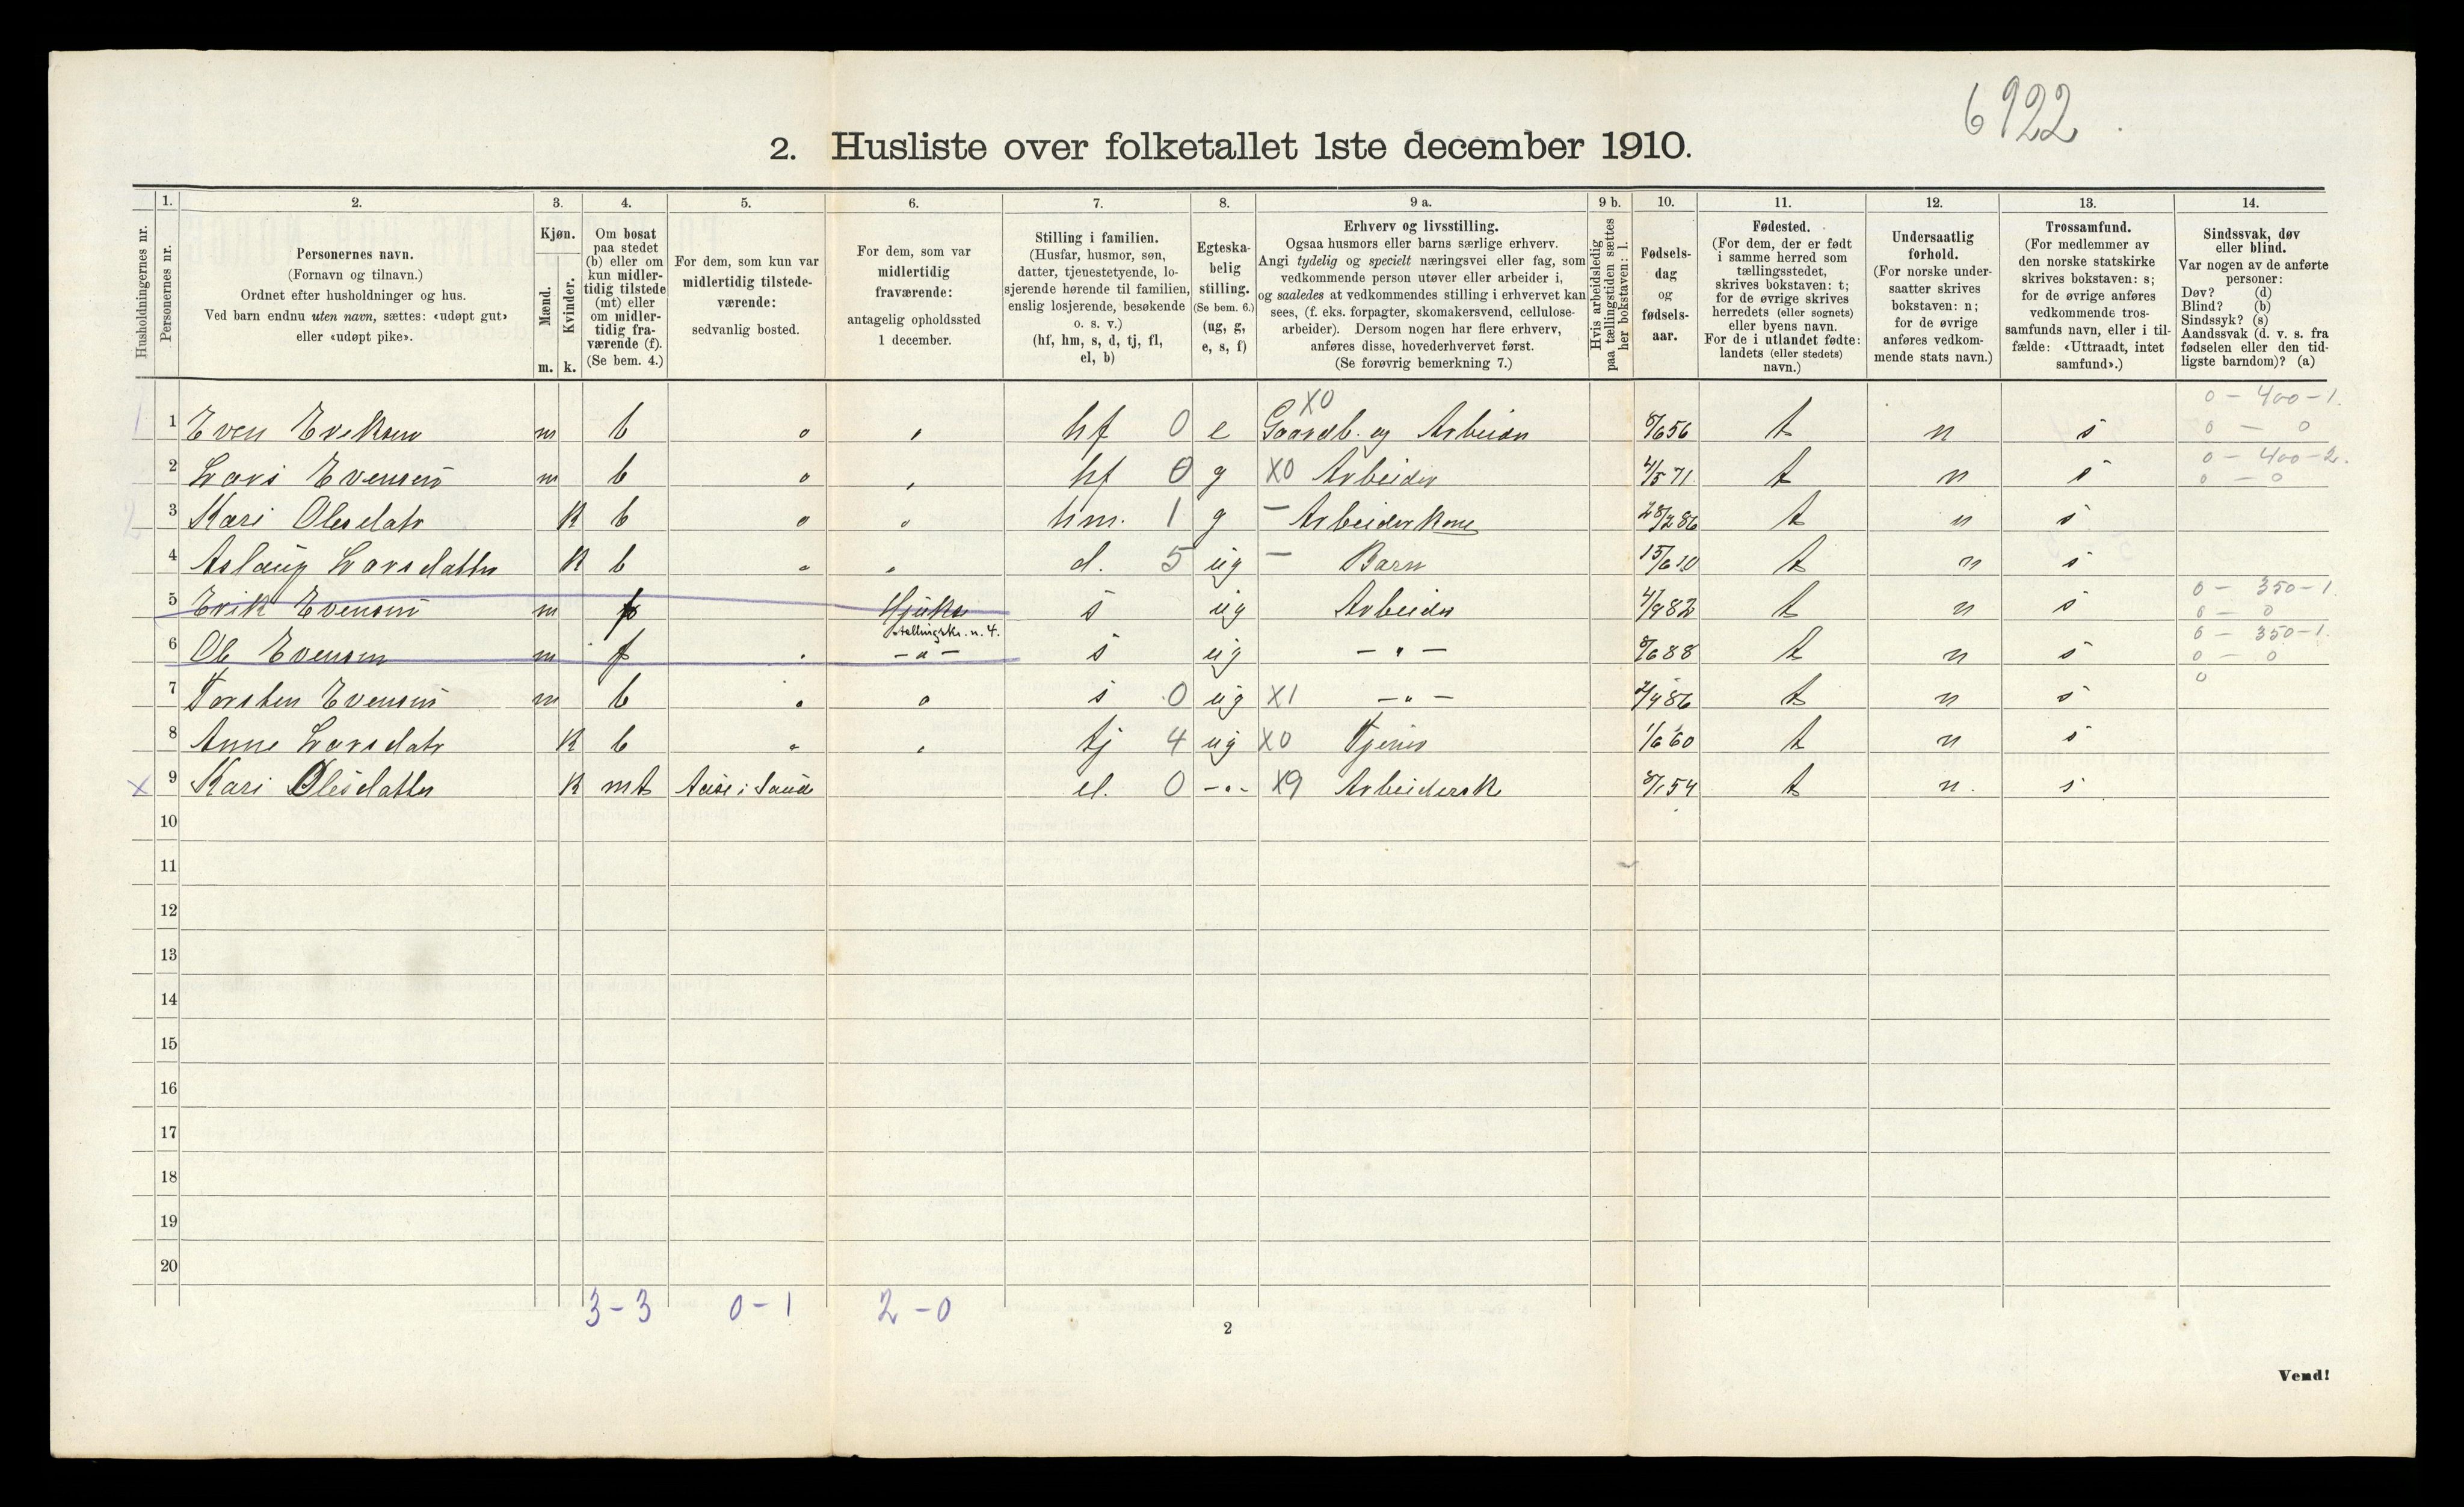 6922
2. Husliste over folketallet 1ste december 1910.
1. 2. 3. 4. 5. 6. 7. 8. 9 a. 9 b. 10. 11. 12. 13. 14.
Husholdningernes nr.
Personernes nr.
Personernes navn.
(Fornavn og tilnavn.)
Ordnet efter husholdninger og hus.
Ved barn endnu uten navn, sættes: «udøpt gut»
eller «udøpt pike».
Kjøn.
Mænd.
Kvinder.
m. k.
Om bosat
paa stedet
(b) eller om
kun midler-
tidig tilstede
(mt) eller
om midler-
tidig fra-
værende (f).
(Se bem. 4.)
For dem, som kun var
midlertidig tilstede-
værende:
sedvanlig bosted.
For dem, som var
midlertidig
fraværende:
antagelig opholdssted
1 december.
Stilling i familien.
(Husfar, husmor, søn,
datter, tjenestetyende, lo-
sjerende hørende til familien,
enslig losjerende, besøkende
o. s. v.)
(hf, hm, s, d, tj, fl,
el, b)
Egteska-
belig
stilling.
(Se bem. 6.)
(ug, g,
e, s, f)
Erhverv og livsstilling.
Ogsaa husmors eller barns særlige erhverv.
Angi tydelig og specielt næringsvei eller fag, som
vedkommende person utøver eller arbeider i,
og saaledes at vedkommendes stilling i erhvervet kan
sees, (f. eks. forpagter, skomakersvend, cellulose-
arbeider). Dersom nogen har flere erhverv,
anføres disse, hovederhvervet først.
(Se forøvrig bemerkning 7.)
Hvis arbeidsledig
paa tællingstiden sættes
her bokstaven: l.
Fødsels-
dag
og
fødsels-
aar.
Fødested.
(For dem, der er født
i samme herred som
tællingsstedet,
skrives bokstaven: t;
for de øvrige skrives
herredets (eller sognets)
eller byens navn.
For de i utlandet fødte:
landets (eller stedets)
navn.)
Undersaatlig
forhold.
(For norske under-
saatter skrives
bokstaven: n;
for de øvrige
anføres vedkom-
mende stats navn.)
Trossamfund.
(For medlemmer av
den norske statskirke
skrives bokstaven: s;
for de øvrige anføres
vedkommende tros-
samfunds navn, eller i til-
fælde: «Uttraadt, intet
samfund».)
Sindssvak, døv
eller blind.
Var nogen av de anførte
personer:
Døv? (d)
Blind? (b)
Sindssyk? (s)
Aandssvak (d. v. s. fra
fødselen eller den tid-
ligste barndom)? (a)
X0 0 - 400 - 1.
1 1 Even Eriksen m b " " hf 0 e Gaardb. og Arbeider 8/6 56 t n s 0 - 0
0 - 400 - 2.
2 Lars Evensen m b " " hf 0 g X0 Arbeider 4/5 71 t n s 0 - 0
2 3 Kari Olesdatr k b " " hm. 1 g - Arbeiderkone 28/2 86 t n s
4 Aslaug Larsdatter k b " " d. 5 ug - Barn 15/6 10 t n s
0 - 350 - 1
5 Erik Evensen m f Hjuksa s ug Arbeider 4/9 82 t n s 0 - 0
tellingskr. n. 4. 0 - 350 - 1.
6 Ole Evensen m f " - " - s ug - " - 8/6 88 t n s 0 - 0
0
7 Torsten Evensen m b " " s 0 ug X1 - " - 2/4 86 t n s
8 Anne Larsdatr k b " " tj 4 ug X0 Tjener 1/6 60 t n s
X 9 Kari Olesdatter k mt i Saude el. 0 - " - X9 Arbeidersk 8/1 54 t n. s
10
11
12
13
14
15
16
17
18
19
20
3 - 3 0 - 1 2 - 0
2
Vend!